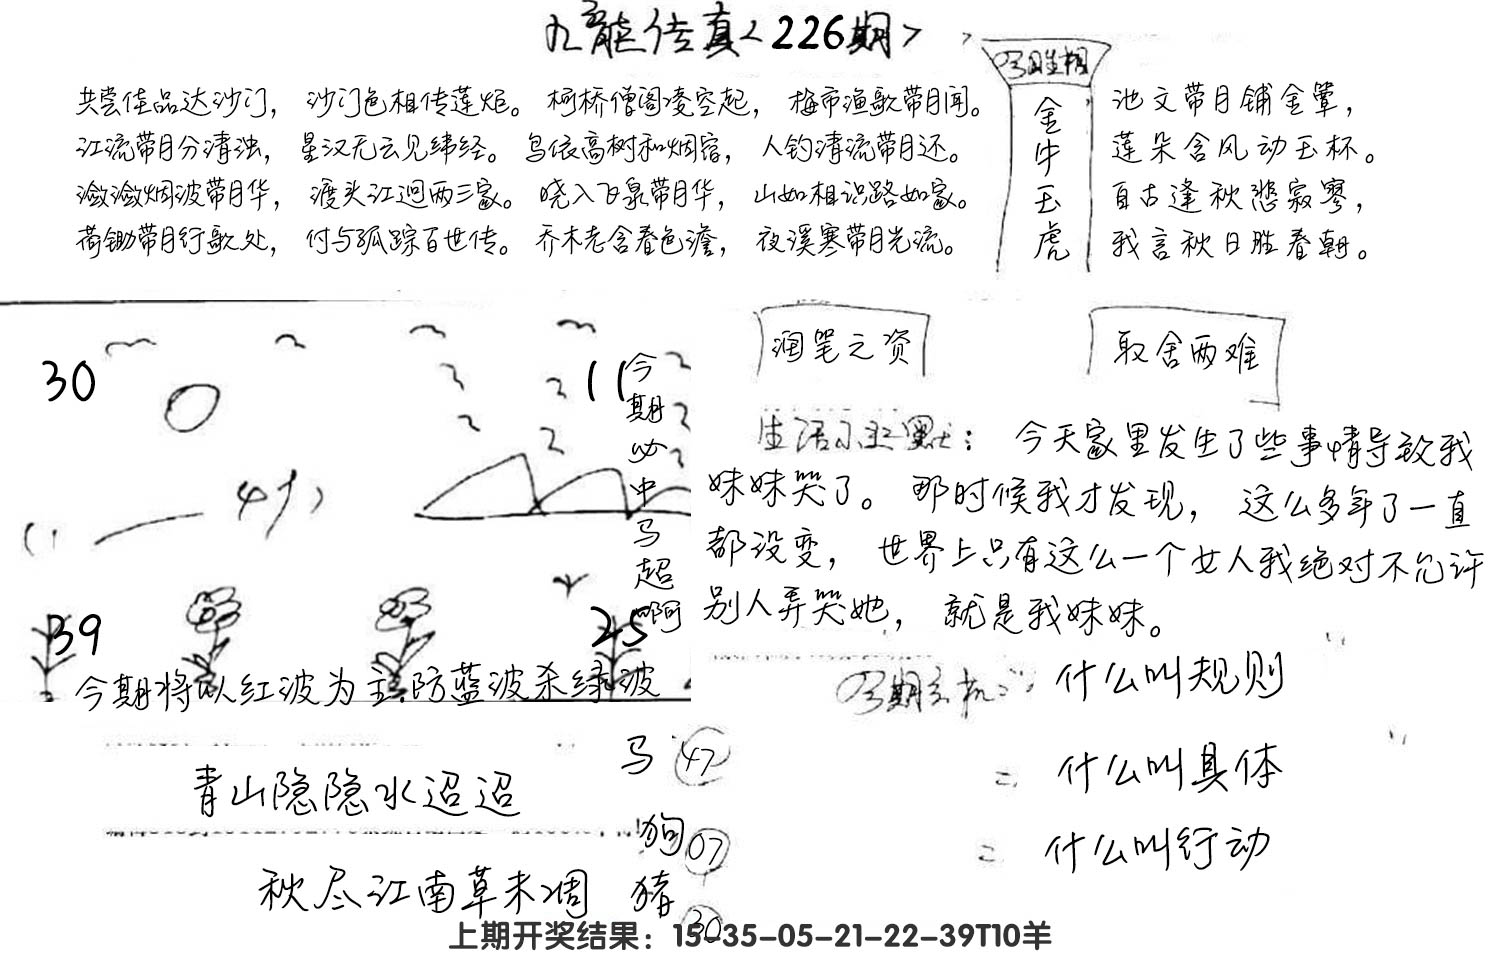 九龙传真<226期>
共尝佳品达沙门，沙门色相传莲炬。柯桥僧阁凌空起，梅市渔歌带月闻。
江流带月分清浊，星汉无云见纬经。鸟依高树和烟宿，人钓清流带月还。
潋潋烟波带月华，渡头江迥两三家。晓入飞泉带月华，山如相识路如家。
荷锄带月行歌处，付与孤踪百世传。乔木老含春色澹，夜溪寒带月光流。
今期生相
金牛玉虎
池文带月铺金簟，
莲朵含风动玉杯。
自古逢秋悲寂寥，
我言秋日胜春朝。
30
11
39
25
今期必中马超啊
今期将以红波为主.防蓝波杀绿波
润笔之资
取舍两难
生活小幽默：今天家里发生了些事情导致我
妹妹哭了。那时候我才发现，这么多年了一直
都没变，世界上只有这么一个女人我绝对不允许
别人弄哭她，就是我妹妹。
什么叫规则
什么叫具体
什么叫行动
青山隐隐水迢迢
秋尽江南草未凋
马 47
狗 07
猪 30
上期开奖结果：15-35-05-21-22-39T10羊